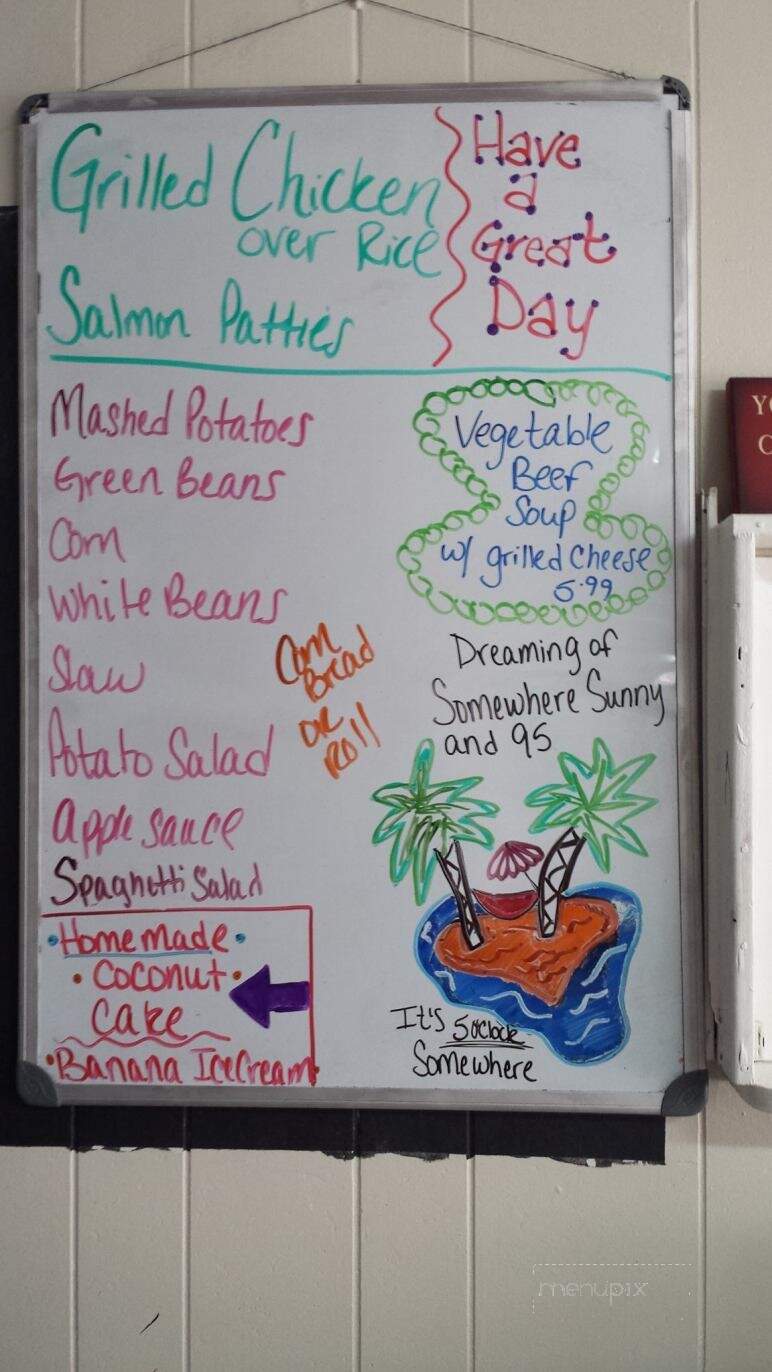 Grilled Chicken
over Rice
Salmon Patties
Have
a
Great
Day
Mashed Potatoes
Green Beans
Corn
White Beans
Slaw
Potato Salad
Apple sauce
Spaghetti Salad
Corn
Bread
or
Roll
Vegetable
Beef
Soup
w/ grilled cheese
5.99
Dreaming of
Somewhere Sunny
and 95
Homemade
Coconut
Cake
Banana IceCream
It's 5o'clock
Somewhere
menupix